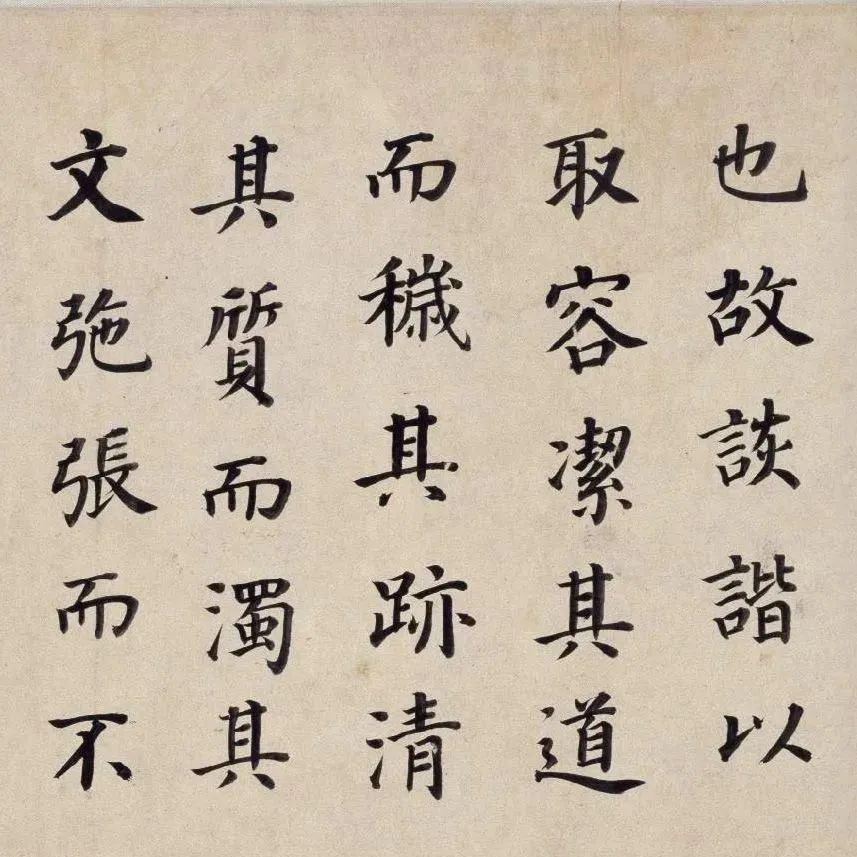 也故談諧以
取容潔其道
而穢其跡清
其質而濁其
文弛張而不